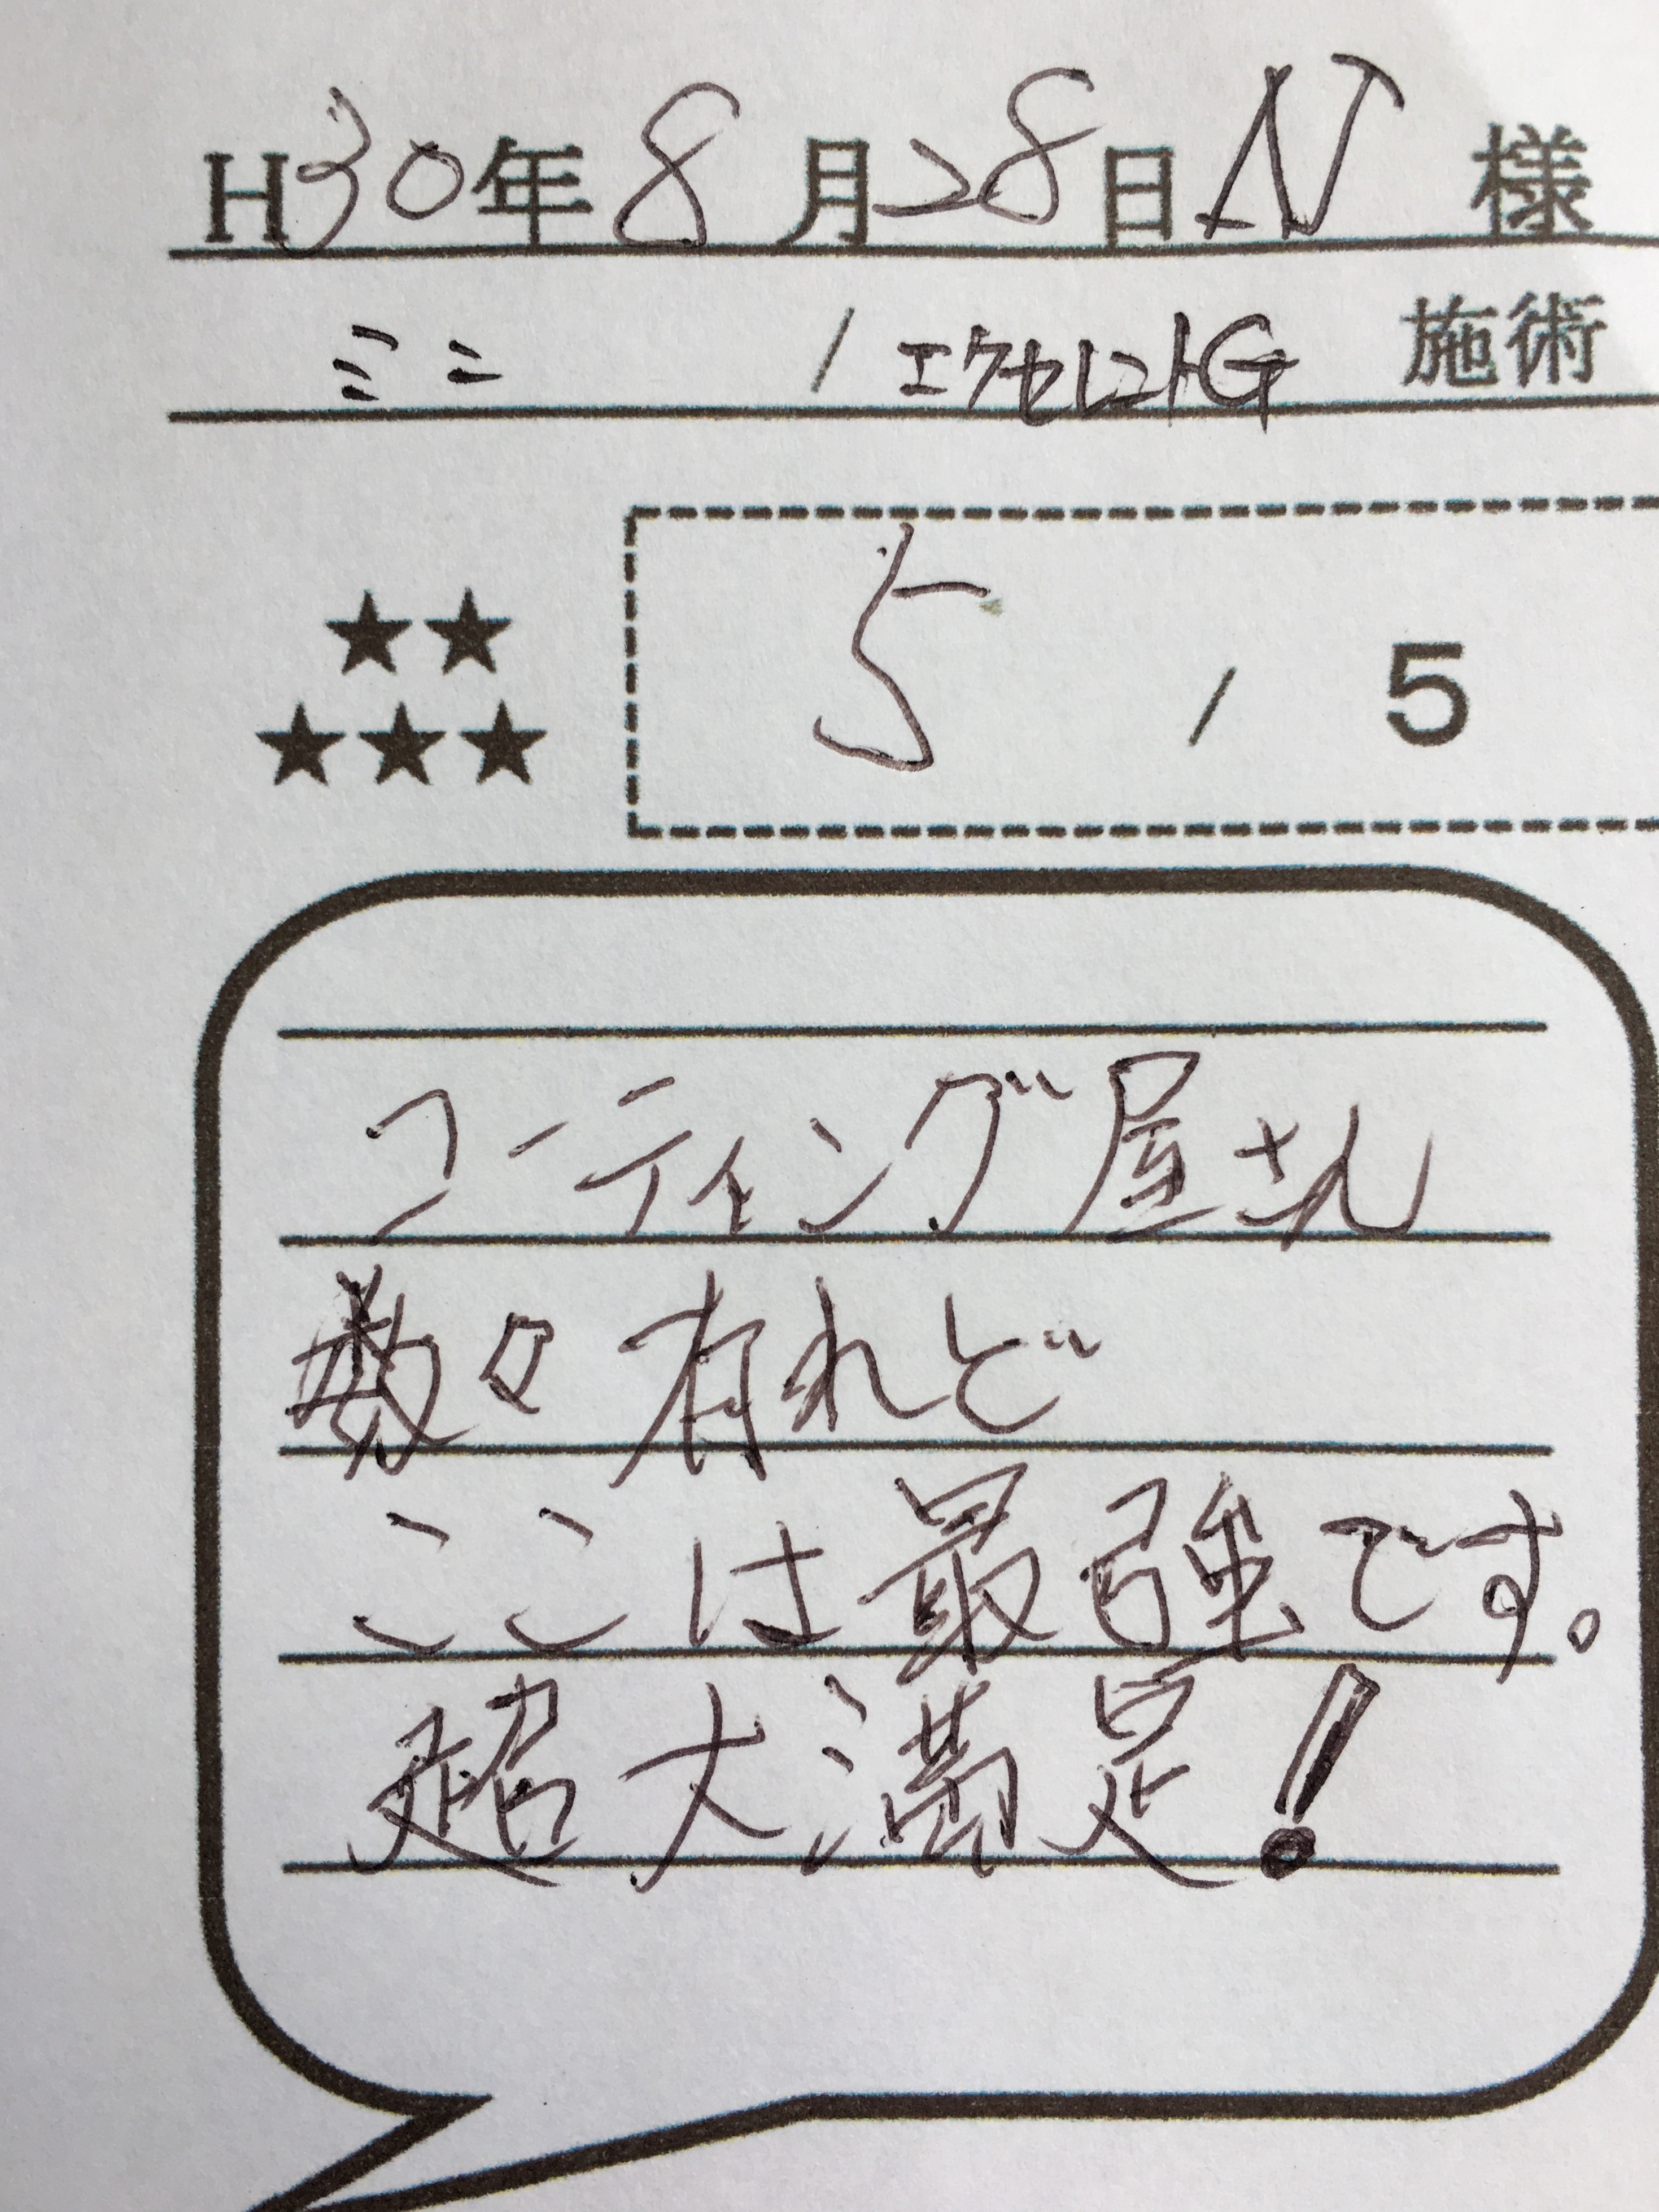 H30年8月28日N 様
ミニ / エクセレントG 施術
★★
★★★
5 / 5
コーティング屋さん
数々有れど
ここは最強です。
超大満足!